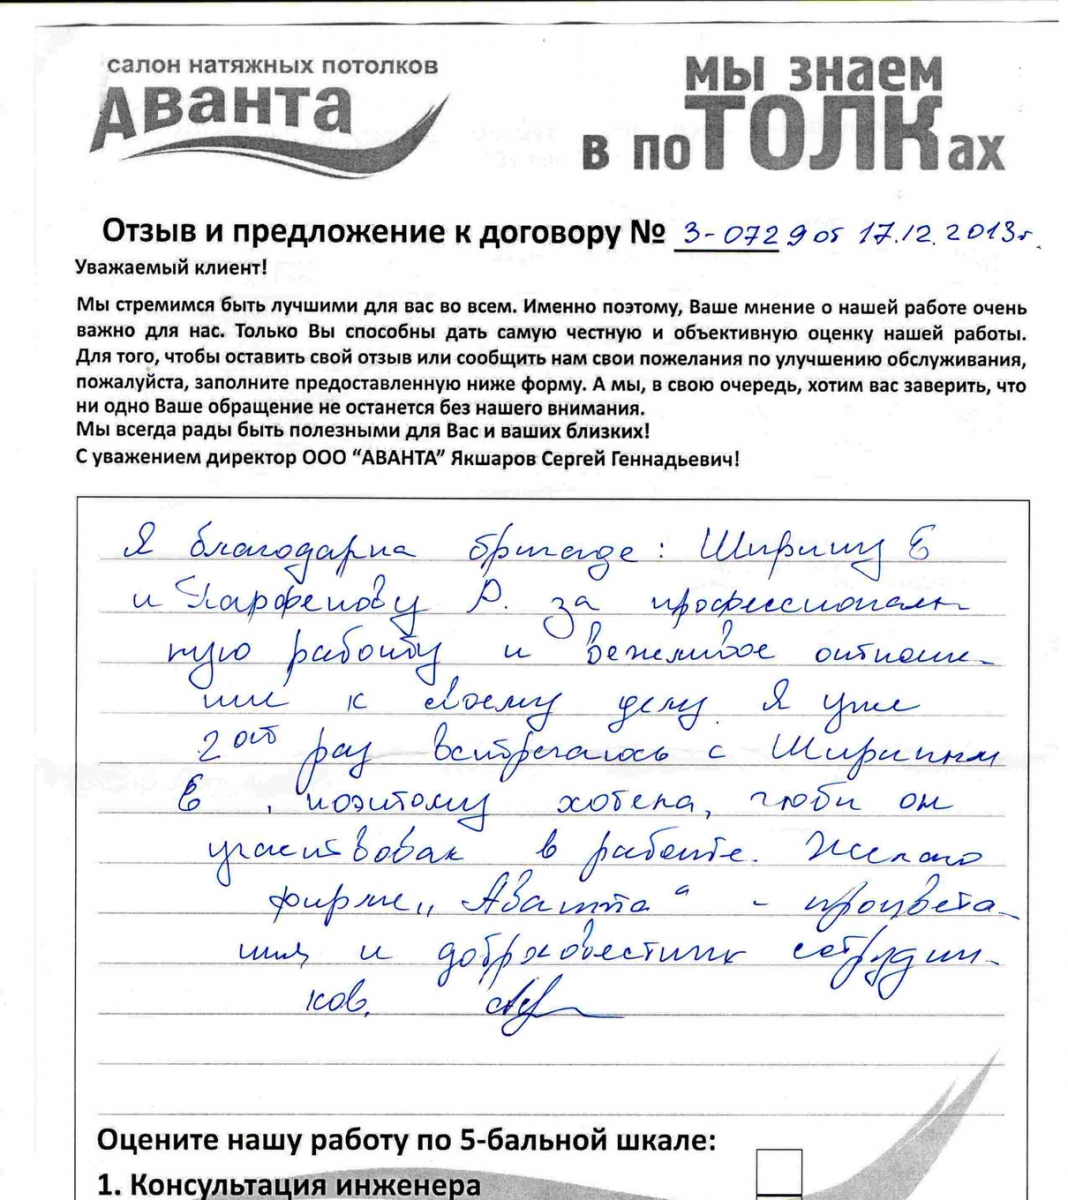 салон натяжных потолков
Аванта
мы знаем
в поТОЛКах
Отзыв и предложение к договору № 3-0729 от 17.12.2013г.
Уважаемый клиент!
Мы стремимся быть лучшими для вас во всем. Именно поэтому, Ваше мнение о нашей работе очень
важно для нас. Только Вы способны дать самую честную и объективную оценку нашей работы.
Для того, чтобы оставить свой отзыв или сообщить нам свои пожелания по улучшению обслуживания,
пожалуйста, заполните предоставленную ниже форму. А мы, в свою очередь, хотим вас заверить, что
ни одно Ваше обращение не останется без нашего внимания.
Мы всегда рады быть полезными для Вас и ваших близких!
С уважением директор ООО “АВАНТА” Якшаров Сергей Геннадьевич!
Я благодарна бригаде: Ширшину Е
и Парфенову Р. за профессиональ
ную работу и вежливое отноше-
ние к своему делу. Я уже
2ой раз встречаюсь с Ширшиным
Е, поэтому хотела, чтобы он
участвовал в работе. Желаю
фирме „Аванта“ - процвета-
ния и добросовестных сотрудни-
ков.
Оцените нашу работу по 5-бальной шкале:
1. Консультация инженера